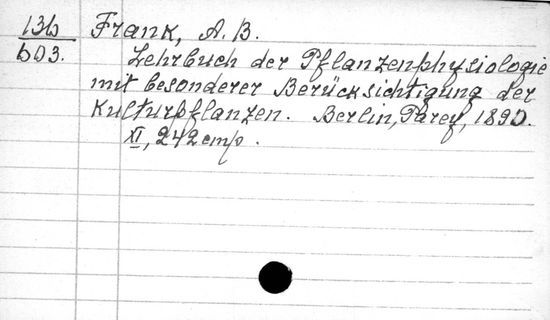 136 Frank, A. B.
603. Lehrbuch der Pflanzenphysiologie
mit besonderer Berücksichtigung der
Kulturpflanzen. Berlin, Parey, 1890.
XI, 242 стр.